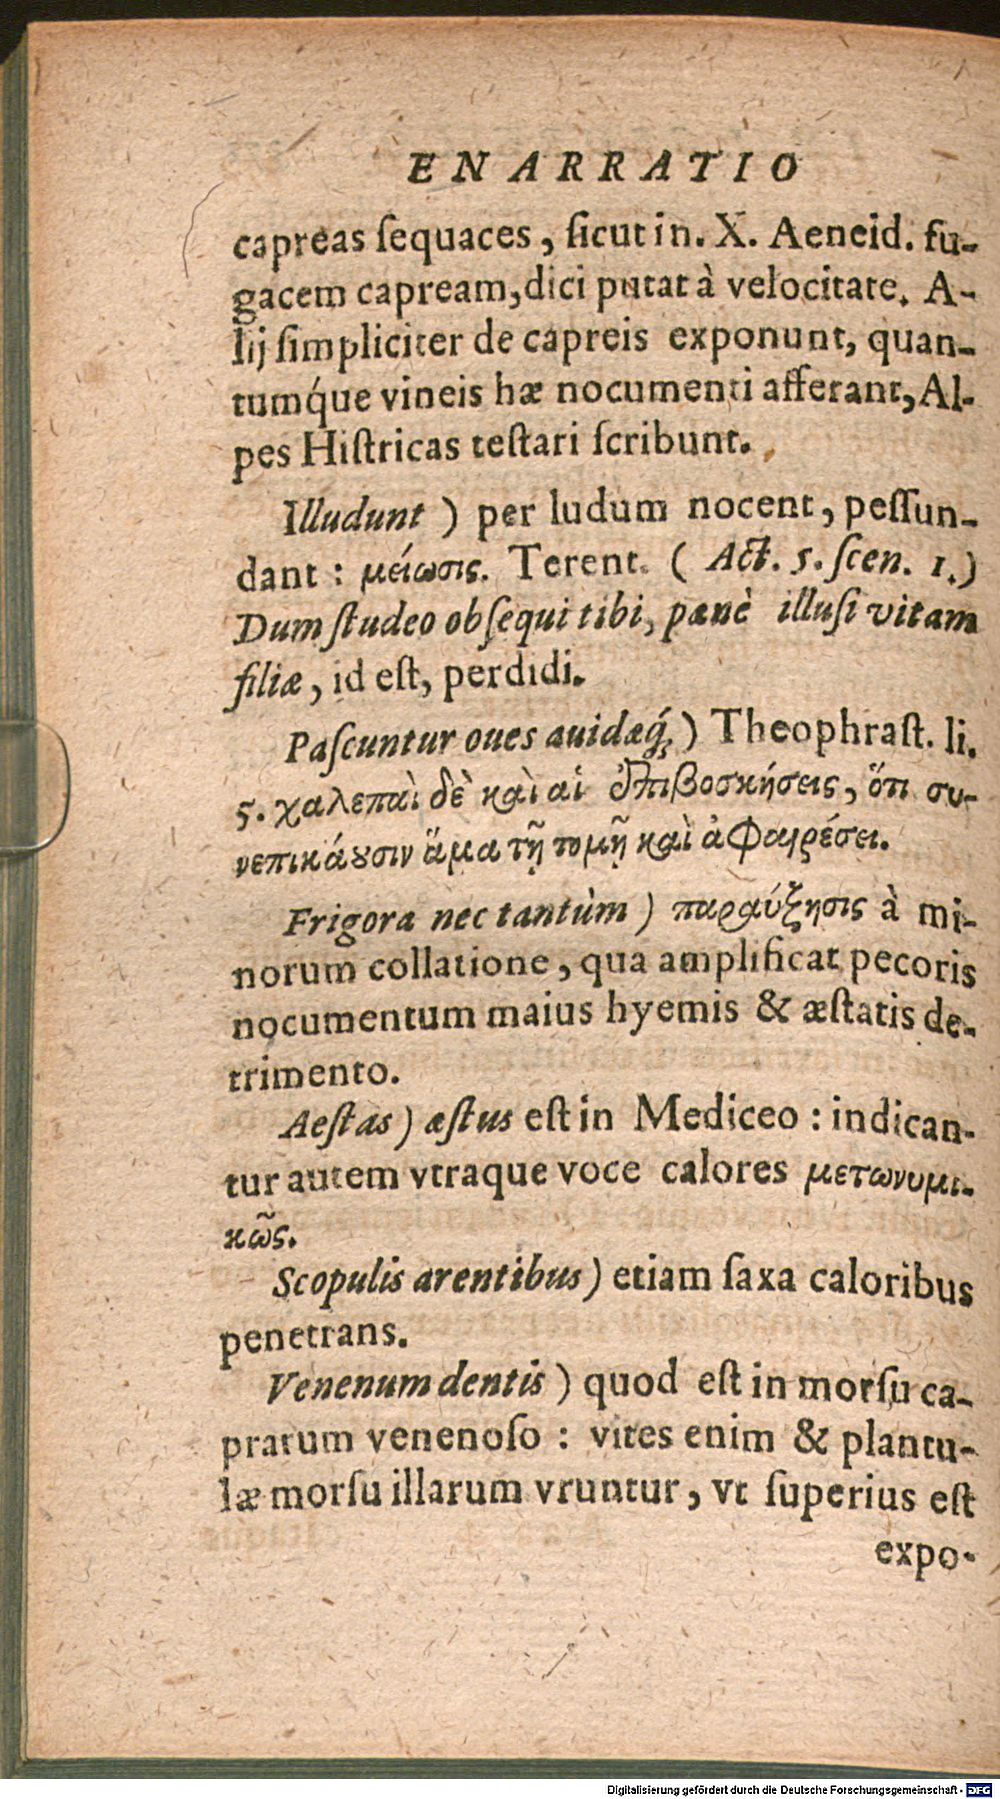 ENARRATIO
capreas ſequaces, ſicut in. X. Aeneid. fu-
gacem capream, dici putat à velocitate. A-
lij ſimpliciter de capreis exponunt, quan-
tumq́ue vineis hæ nocumenti afferant, Al-
pes Hiſtricas teſtari ſcribunt.
Illudunt ) per ludum nocent, peſſun-
dant : μείωσις. Terent. ( Act. 5. ſcen. 1.)
Dum ſtudeo obſequi tibi, pænè illuſi vitam
filiæ, id eſt, perdidi.
Paſcuntur oues auidæq́; ) Theophraſt. li.
5. χαλεπαὶ δὲ καὶ αἱ ἐπιβοσκήσεις, ὅτι συ-
νεπικάουσιν ἅμα τῇ τομῇ καὶ ἀφαιρέσει.
Frigora nec tantùm ) παραύξησις à mi-
norum collatione, qua amplificat pecoris
nocumentum maius hyemis & æſtatis de-
trimento.
Aeſtas ) æſtus eſt in Mediceo : indican-
tur autem vtraque voce calores μετωνυμι-
κῶς.
Scopulis arentibus ) etiam ſaxa caloribus
penetrans.
Venenum dentis ) quod eſt in morſu ca-
prarum venenoſo : vites enim & plantu-
læ morſu illarum vruntur, vt ſuperius eſt
expo-
Digitalisierung gefördert durch die Deutsche Forschungsgemeinschaft - DFG